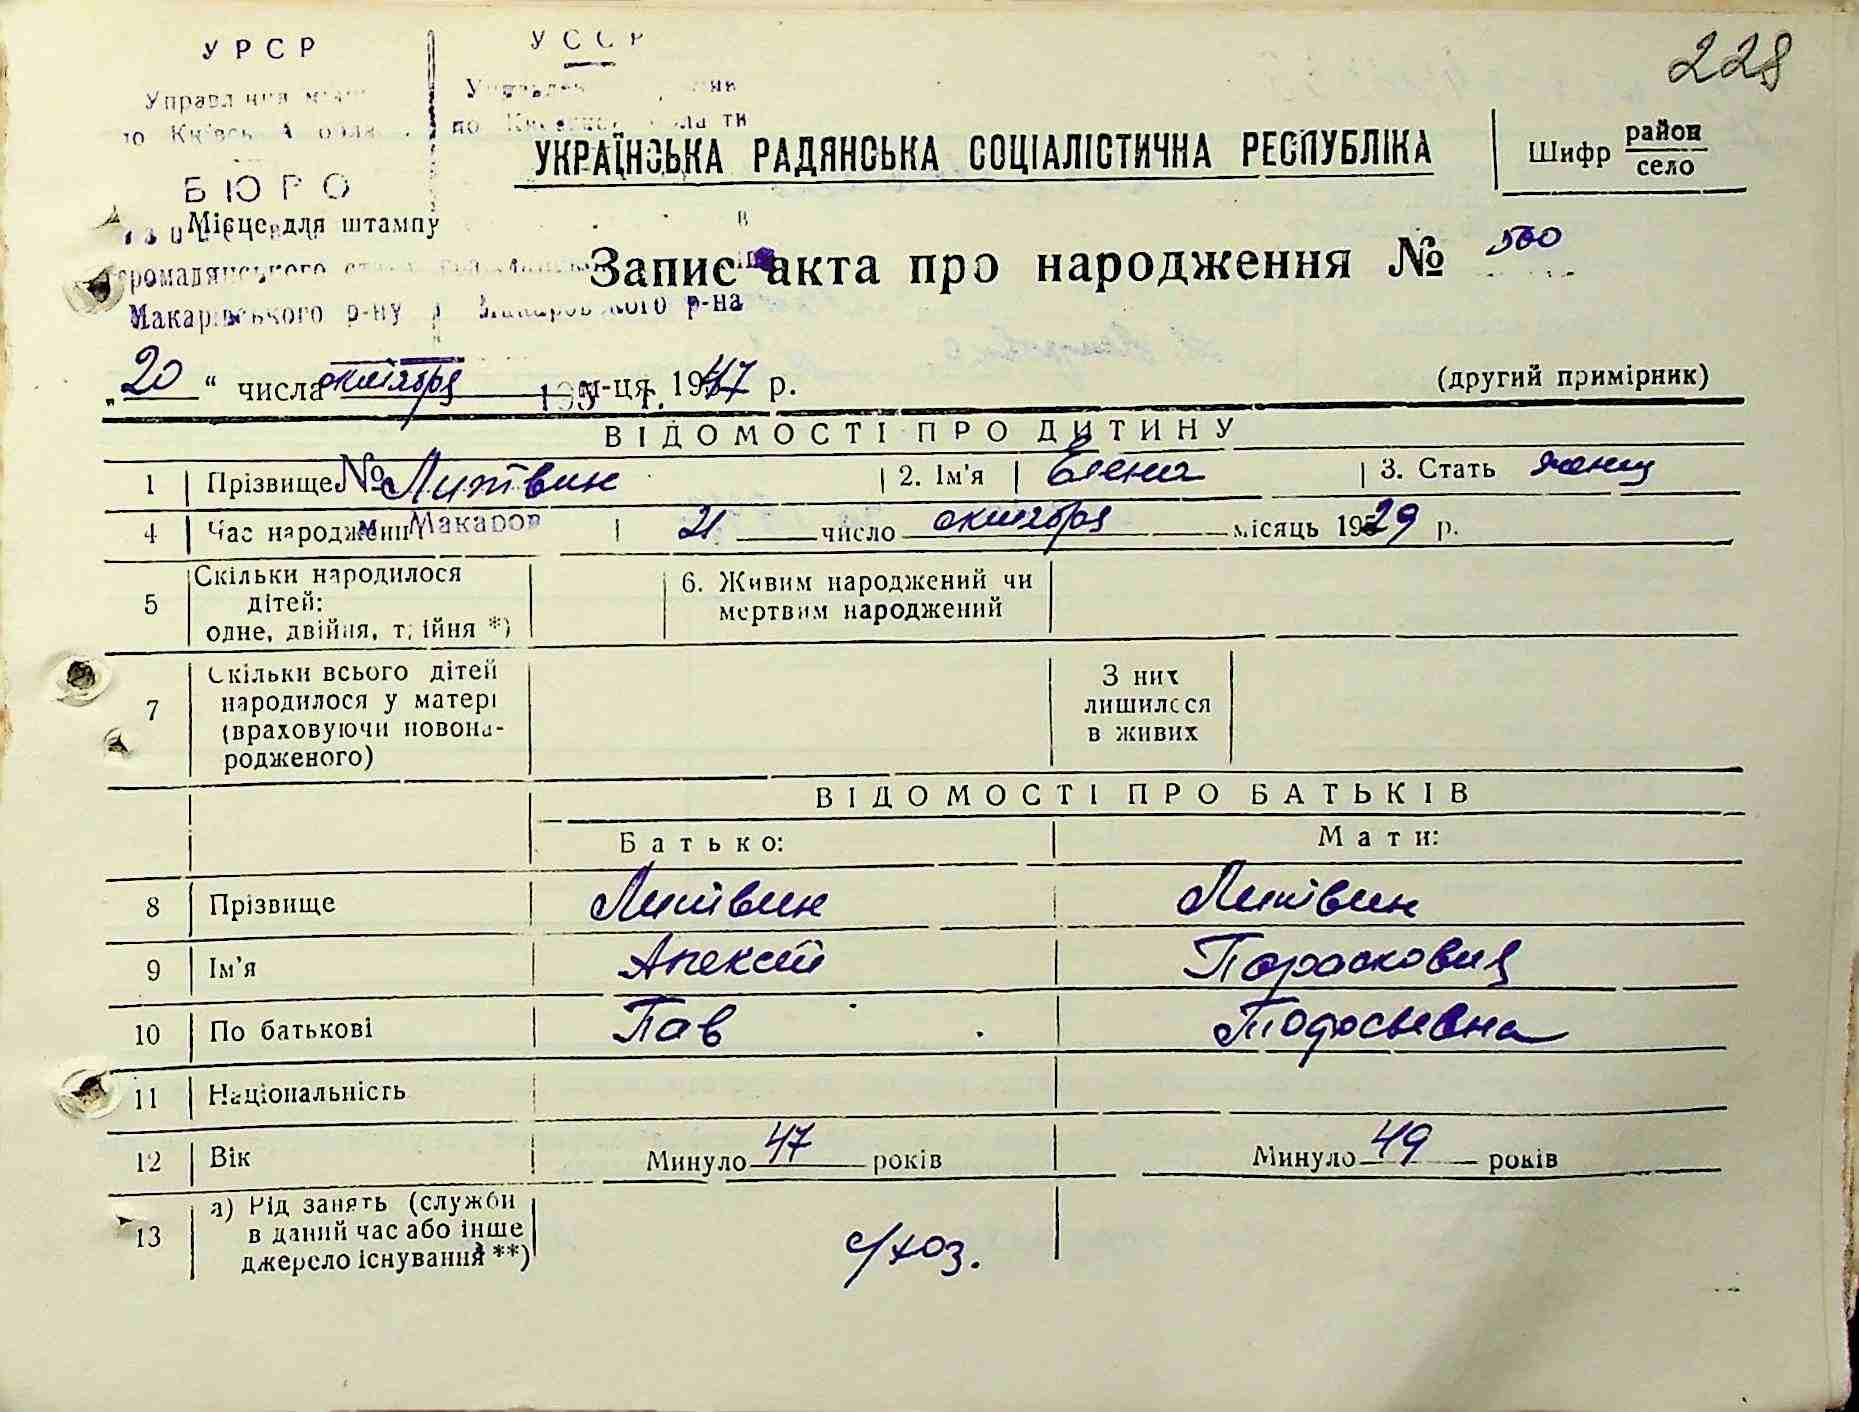 228
УРСР УССР
БЮРО
УКРАЇНСЬКА РАДЯНСЬКА СОЦІАЛІСТИЧНА РЕСПУБЛІКА
Шифр район
село
Місце для штампу
Запис акта про народження № 500
Макарівського р-ну Макаровского р-на
„20“ числа октября м-ця 1947 р.
(другий примірник)
ВІДОМОСТІ ПРО ДИТИНУ
1 Прізвище № Литвин 2. Ім'я Елена 3. Стать женщ
4 Час народження м. Макаров 21 число октября місяць 1929 р.
5 Скільки народилося
дітей:
одне, двійня, трійня *)
6. Живим народжений чи
мертвим народжений
7 Скільки всього дітей
народилося у матері
(враховуючи новона-
родженого)
З них
лишилося
в живих
ВІДОМОСТІ ПРО БАТЬКІВ
Батько: Мати:
8 Прізвище Литвин Литвин
9 Ім'я Алексей Парасковия
10 По батькові Пав Тодосьевна
11 Національність
12 Вік Минуло 47 років Минуло 49 років
13 а) Рід занять (служби
в даний час або інше
джерело існування **)
с/хоз.